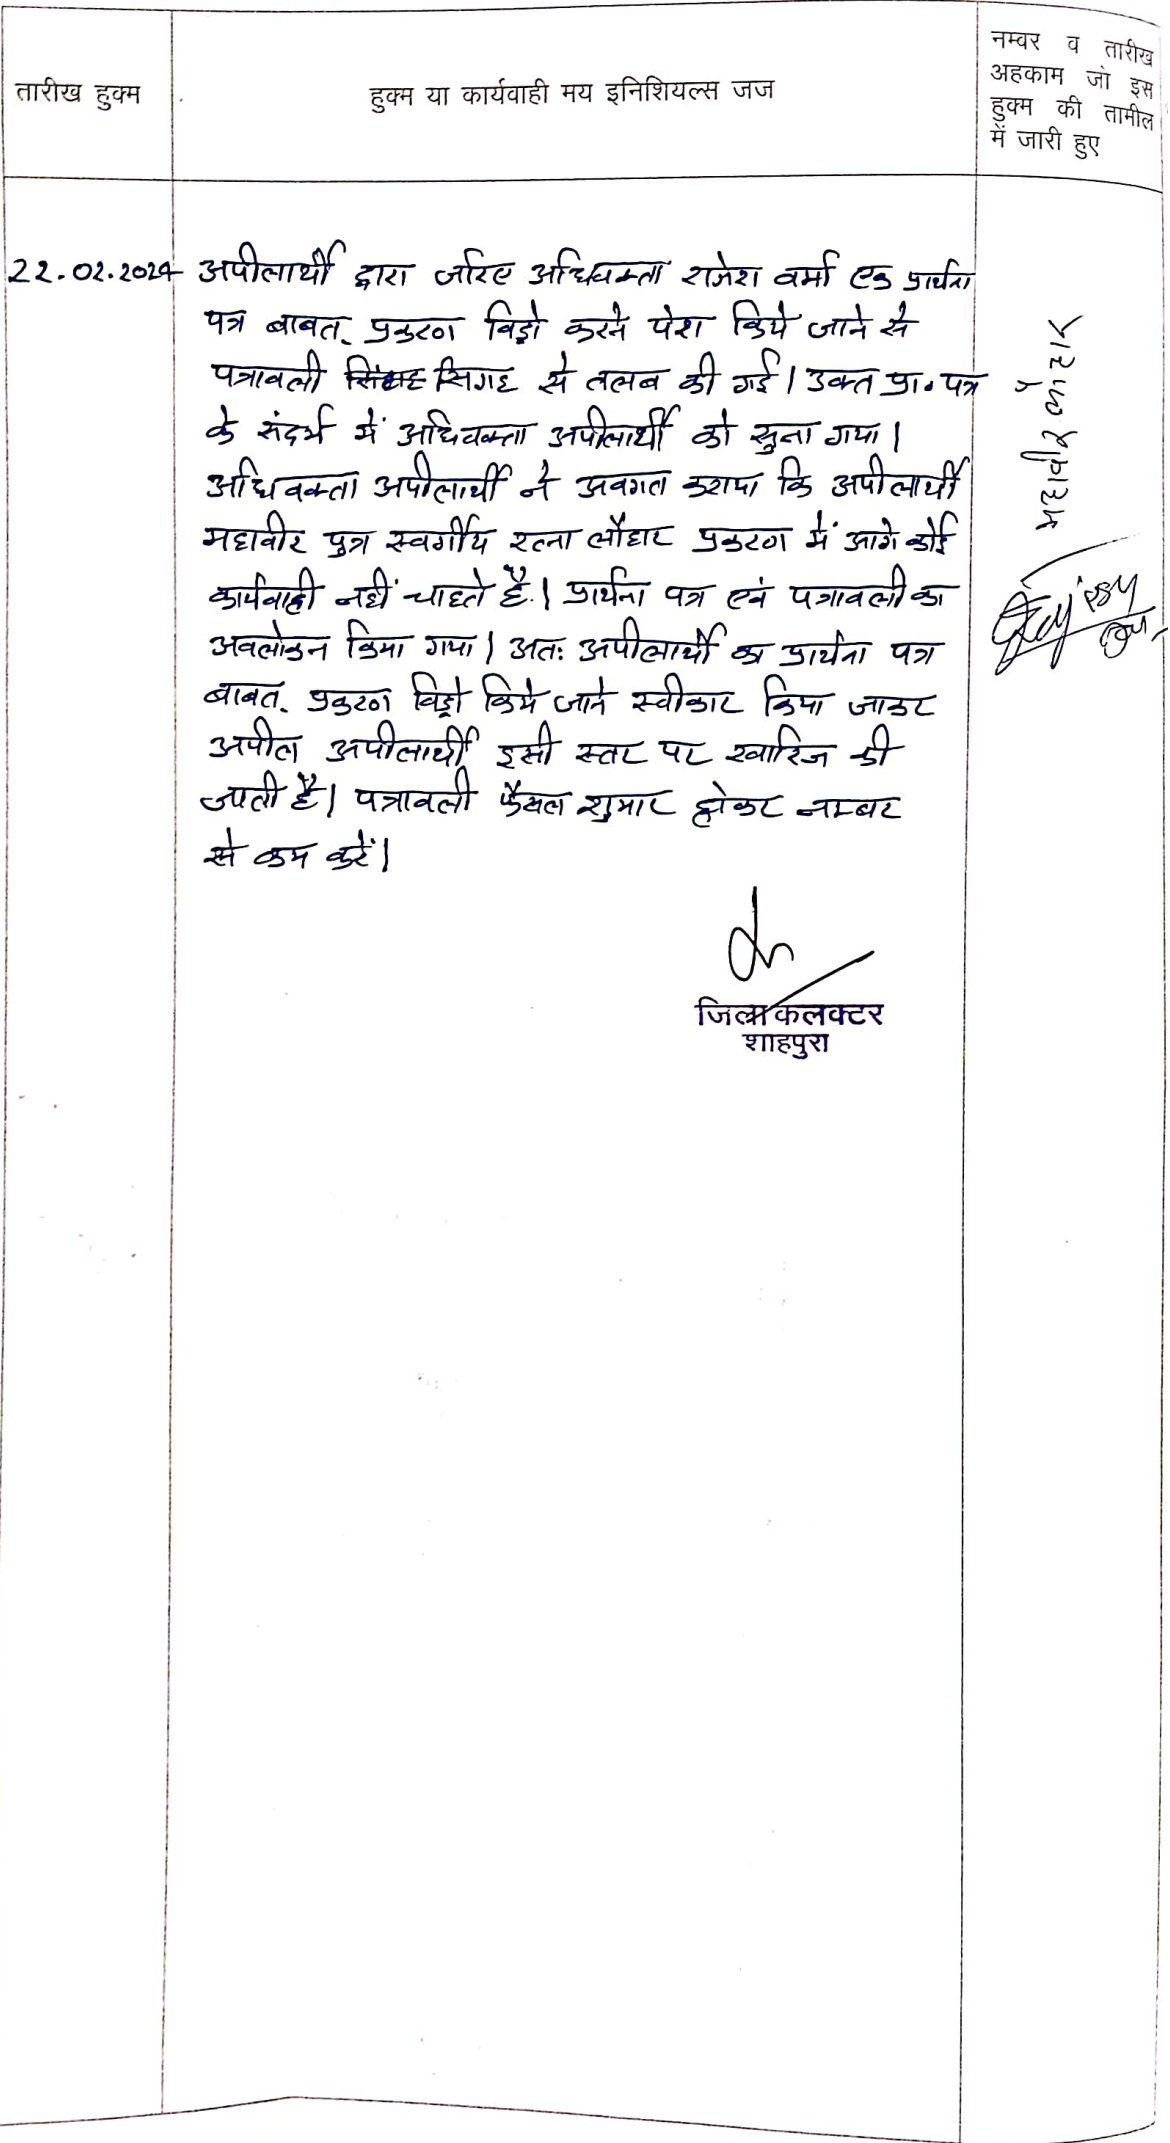 तारीख हुक्म
हुक्म या कार्यवाही मय इनिशियल्स जज
नम्वर व तारीख
अहकाम जो इस
हुक्म की तामील
में जारी हुए
22.02.2024 अपीलार्थी द्वारा जरिए अधिवक्ता राजेश वर्मा एक प्रार्थना
पत्र बाबत् प्रकरण विड्रो करने पेश किये जाने से
पत्रावली सिगह से तलब की गई। उक्त प्रा.पत्र
के संदर्भ में अधिवक्ता अपीलार्थी को सुना गया।
अधिवक्ता अपीलार्थी ने अवगत कराया कि अपीलार्थी
महावीर पुत्र स्वर्गीय रत्ना लौहार प्रकरण में आगे कोई
कार्यवाही नहीं चाहते है। प्रार्थना पत्र एवं पत्रावली का
अवलोकन किया गया। अतः अपीलार्थी का प्रार्थना पत्र
बाबत् प्रकरण विड्रो किये जाने स्वीकार किया जाकर
अपील अपीलार्थी इसी स्तर पर खारिज की
जाती है। पत्रावली फैसल शुमार होकर नम्बर
से कम करें।
महावीर लोहार
जिला कलक्टर
शाहपुरा